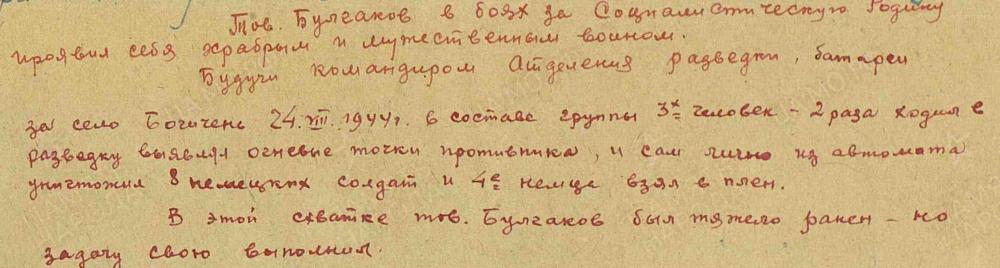 Тов. Булгаков в боях за Социалистическую Родину
проявил себя храбрым и мужественным воином.
Будучи командиром отделения разведки, батареи
за село Богичень 24.VIII.1944г. в составе группы 3х человек – 2 раза ходил в
разведку выявлял огневые точки противника, и сам лично из автомата
уничтожил 8 немецких солдат и 4е немца взял в плен.
В этой схватке тов. Булгаков был тяжело ранен – но
задачу свою выполнил.